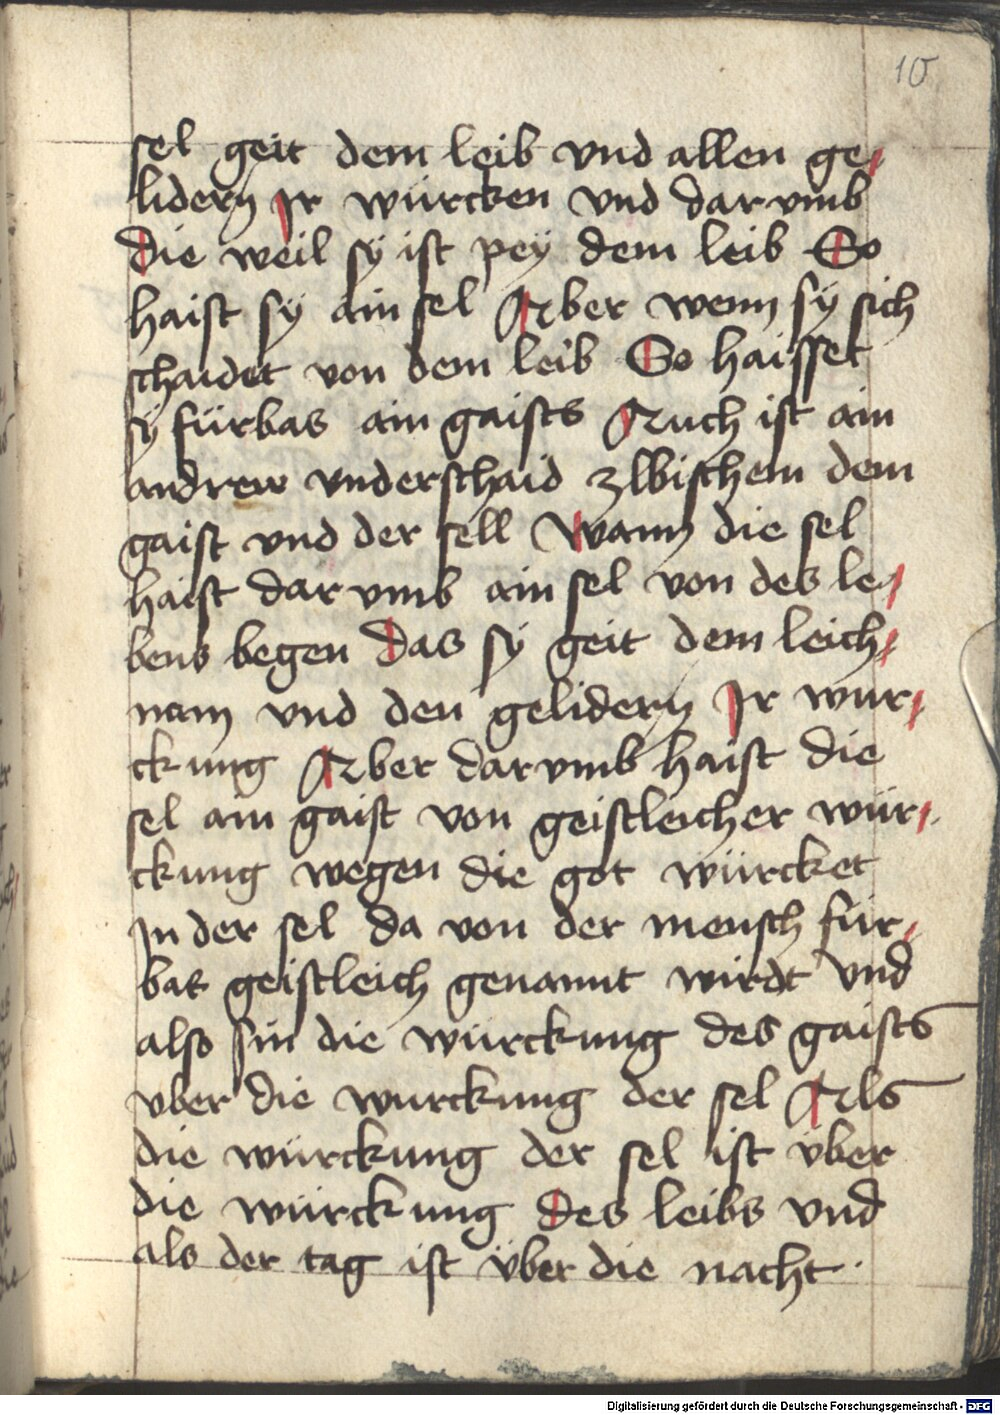 10
sel geit dem leib vnd allen ge-
lidern Ir würcken vnd dar vmb
die weil sÿ ist peÿ dem leib So
haist sÿ ain sel Aber wenn sÿ sich
schaidet von dem leib So haisset
sÿ fürbas ain gaists Auch ist ain
andrew vnderschaid zwischem dem
gaist vnd der sell Wann die sel
haist dar vmb ain sel von des le-
bens begen das sÿ geit dem leich-
nam vnd den gelidern Ir wur-
ckung Aber dar vmb haist die
sel ain gaist von geistleicher wür-
ckung wegen die got würcket
In der sel da von der mensch für-
bas geistleich genannt wirdt vnd
also sin die würckung des gaists
vber die wurckung der sel Als
die würckung der sel ist vber
die würckung des leibs vnd
als der tag ist über die nacht ·
Digitalisierung gefördert durch die Deutsche Forschungsgemeinschaft - DFG